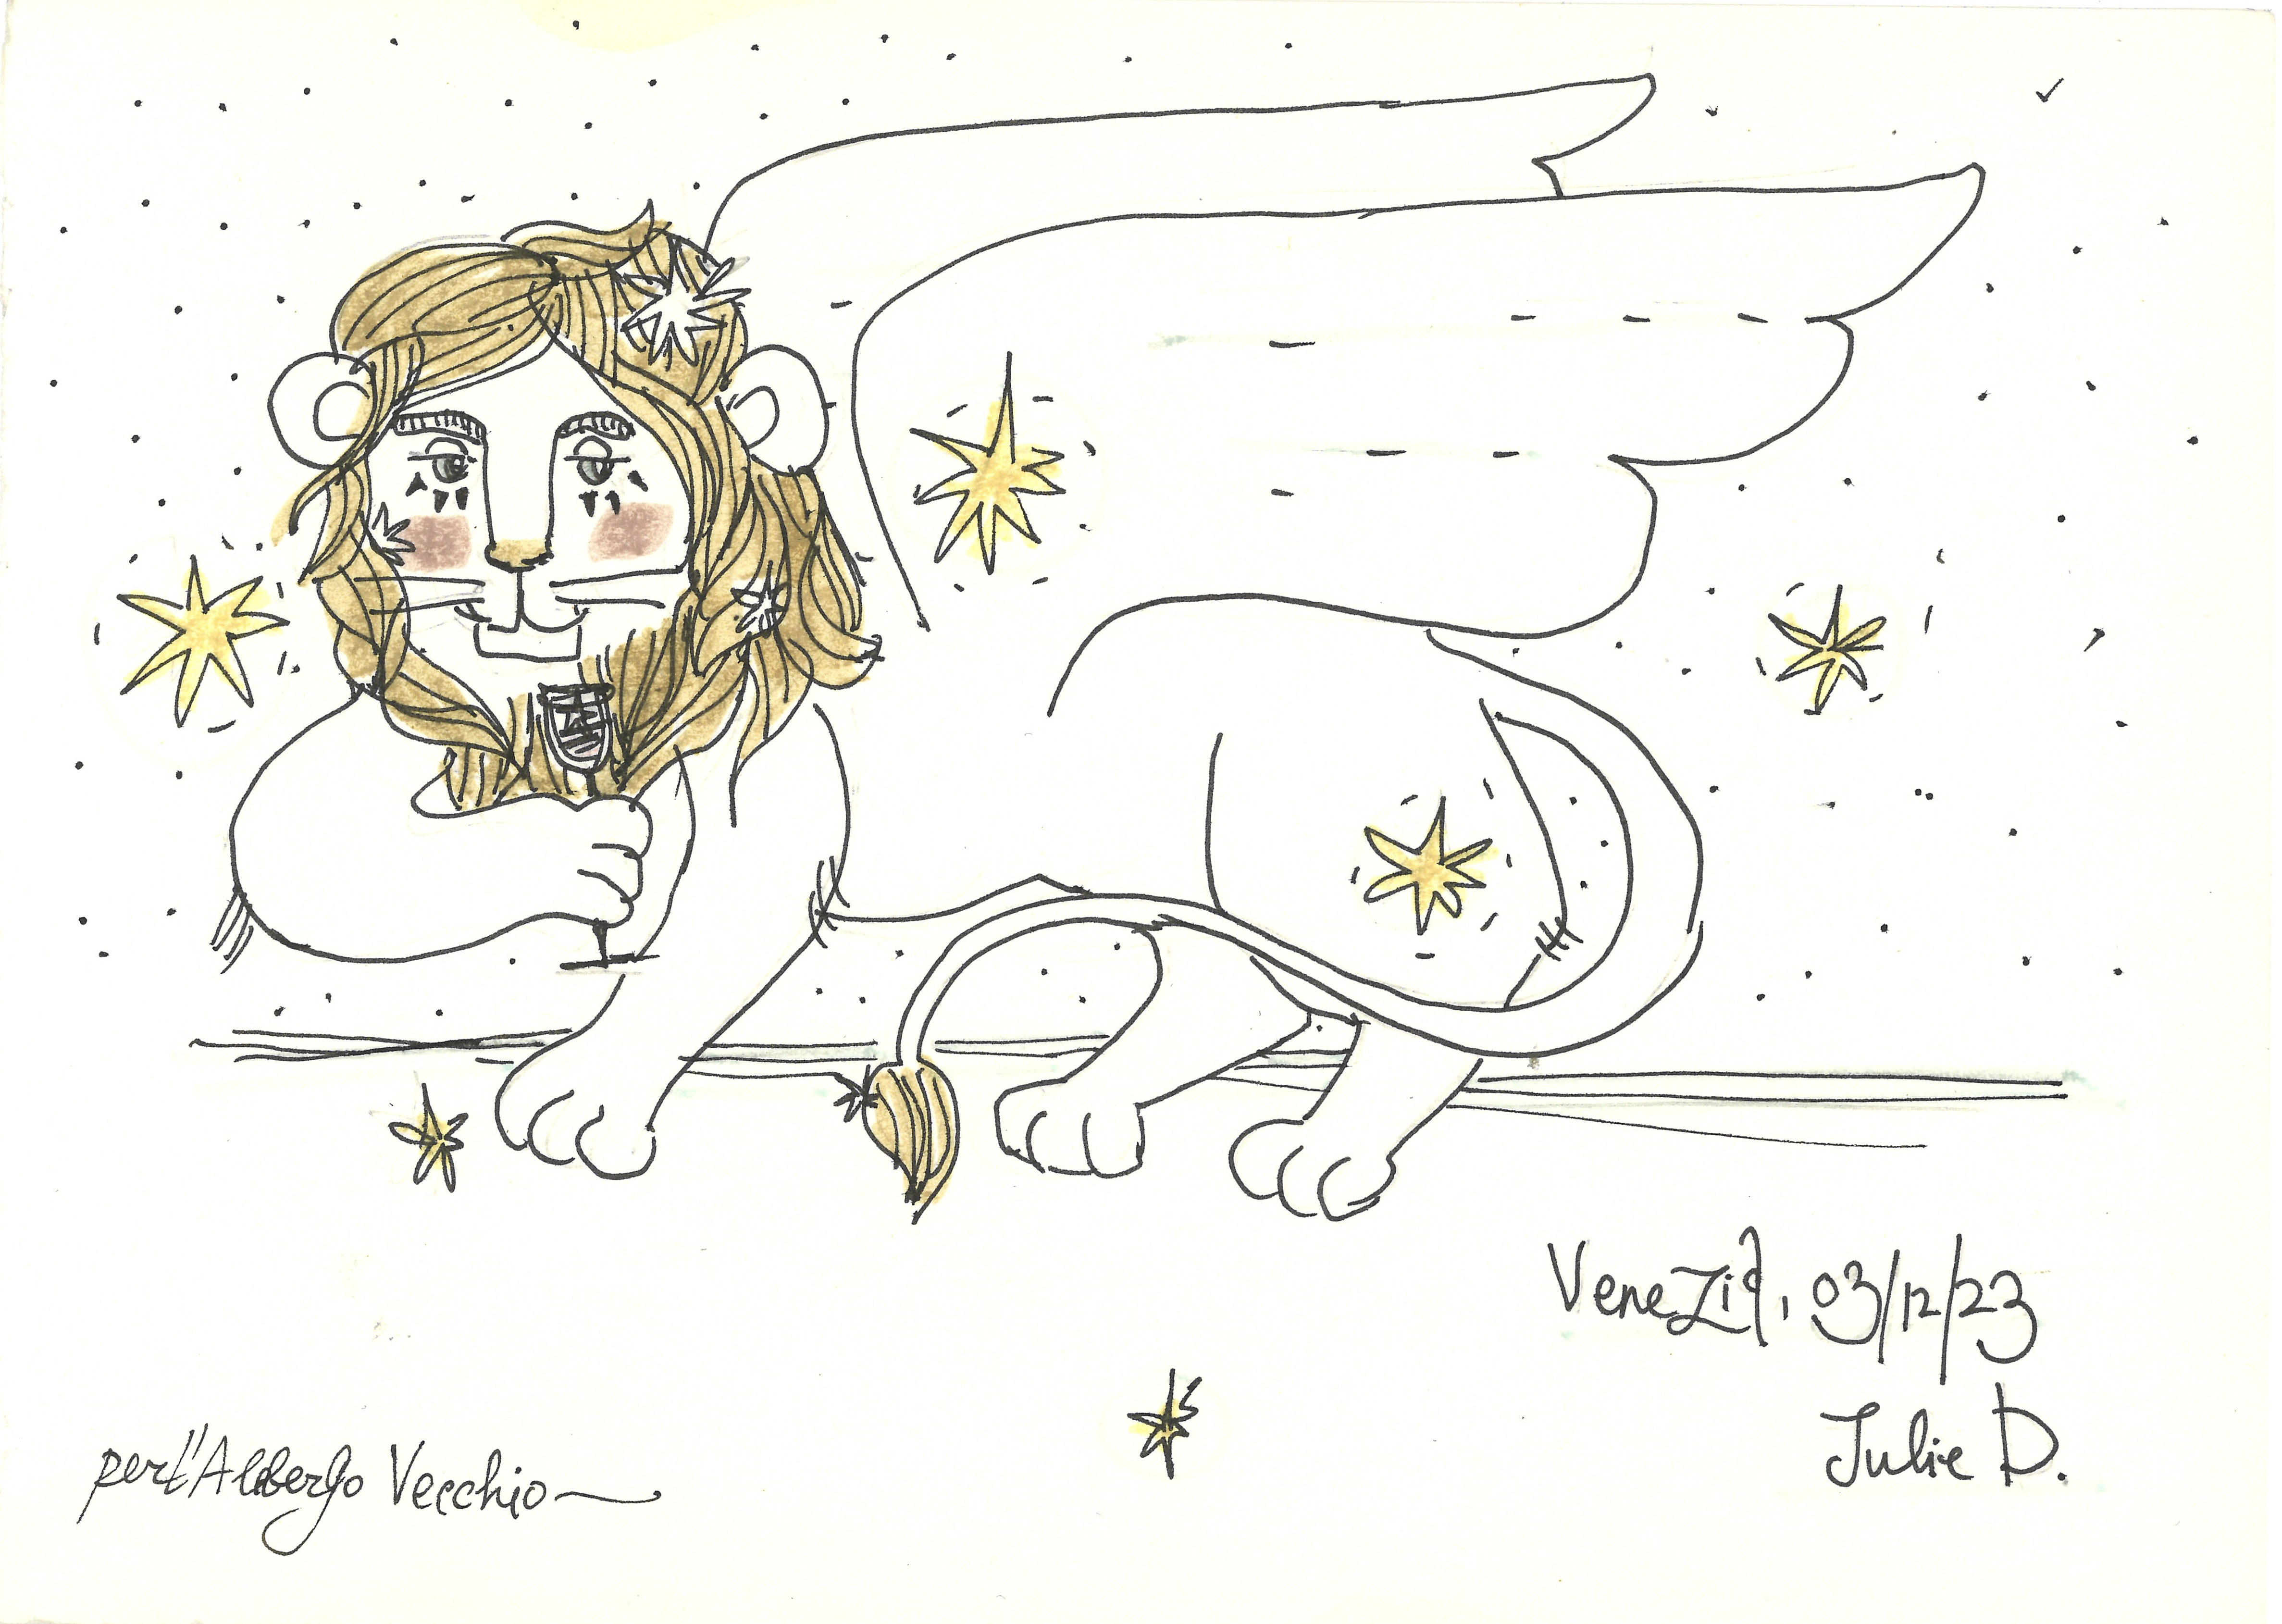 Venezia, 03/12/23
Julie D.
per l'Albergo Vecchio